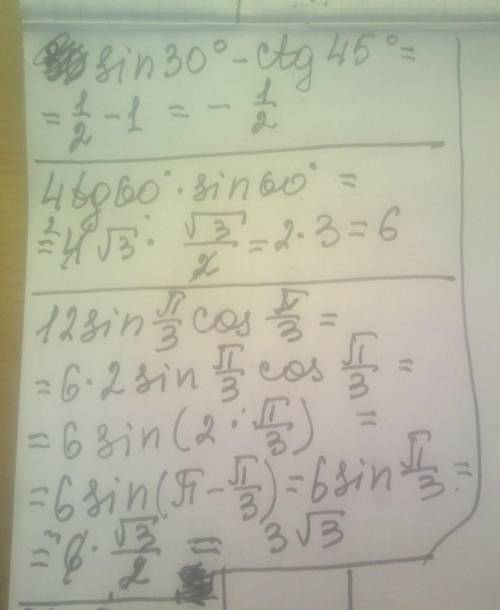 sin 30° - ctg 45° =
= 1/2 - 1 = - 1/2
4 tg 60° · sin 60° =
= 4 √3 · √3/2 = 2 · 3 = 6
12 sin π/3 cos π/3 =
= 6 · 2 sin π/3 cos π/3 =
= 6 sin (2 · π/3) =
= 6 sin (π - π/3) = 6 sin π/3 =
= 6 · √3/2 = 3√3